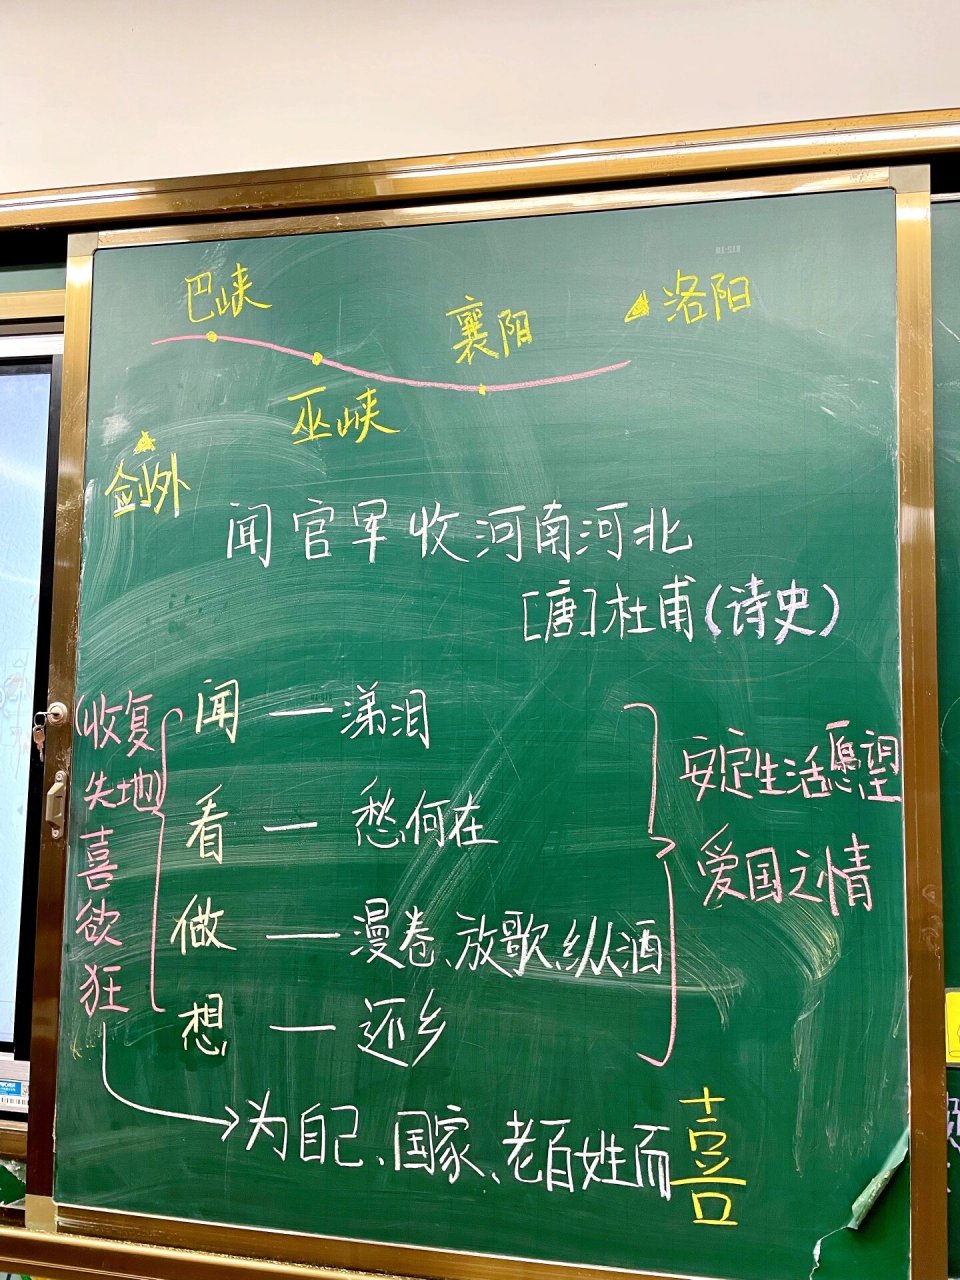 巴峡
襄阳
洛阳
巫峡
剑外
闻官军收河南河北
[唐]杜甫(诗史)
(收复
失地)
喜
欲
狂
闻 — 涕泪
看 — 愁何在
做 — 漫卷、放歌、纵酒
想 — 还乡
安定生活愿望
爱国之情
为自己、国家、老百姓而喜